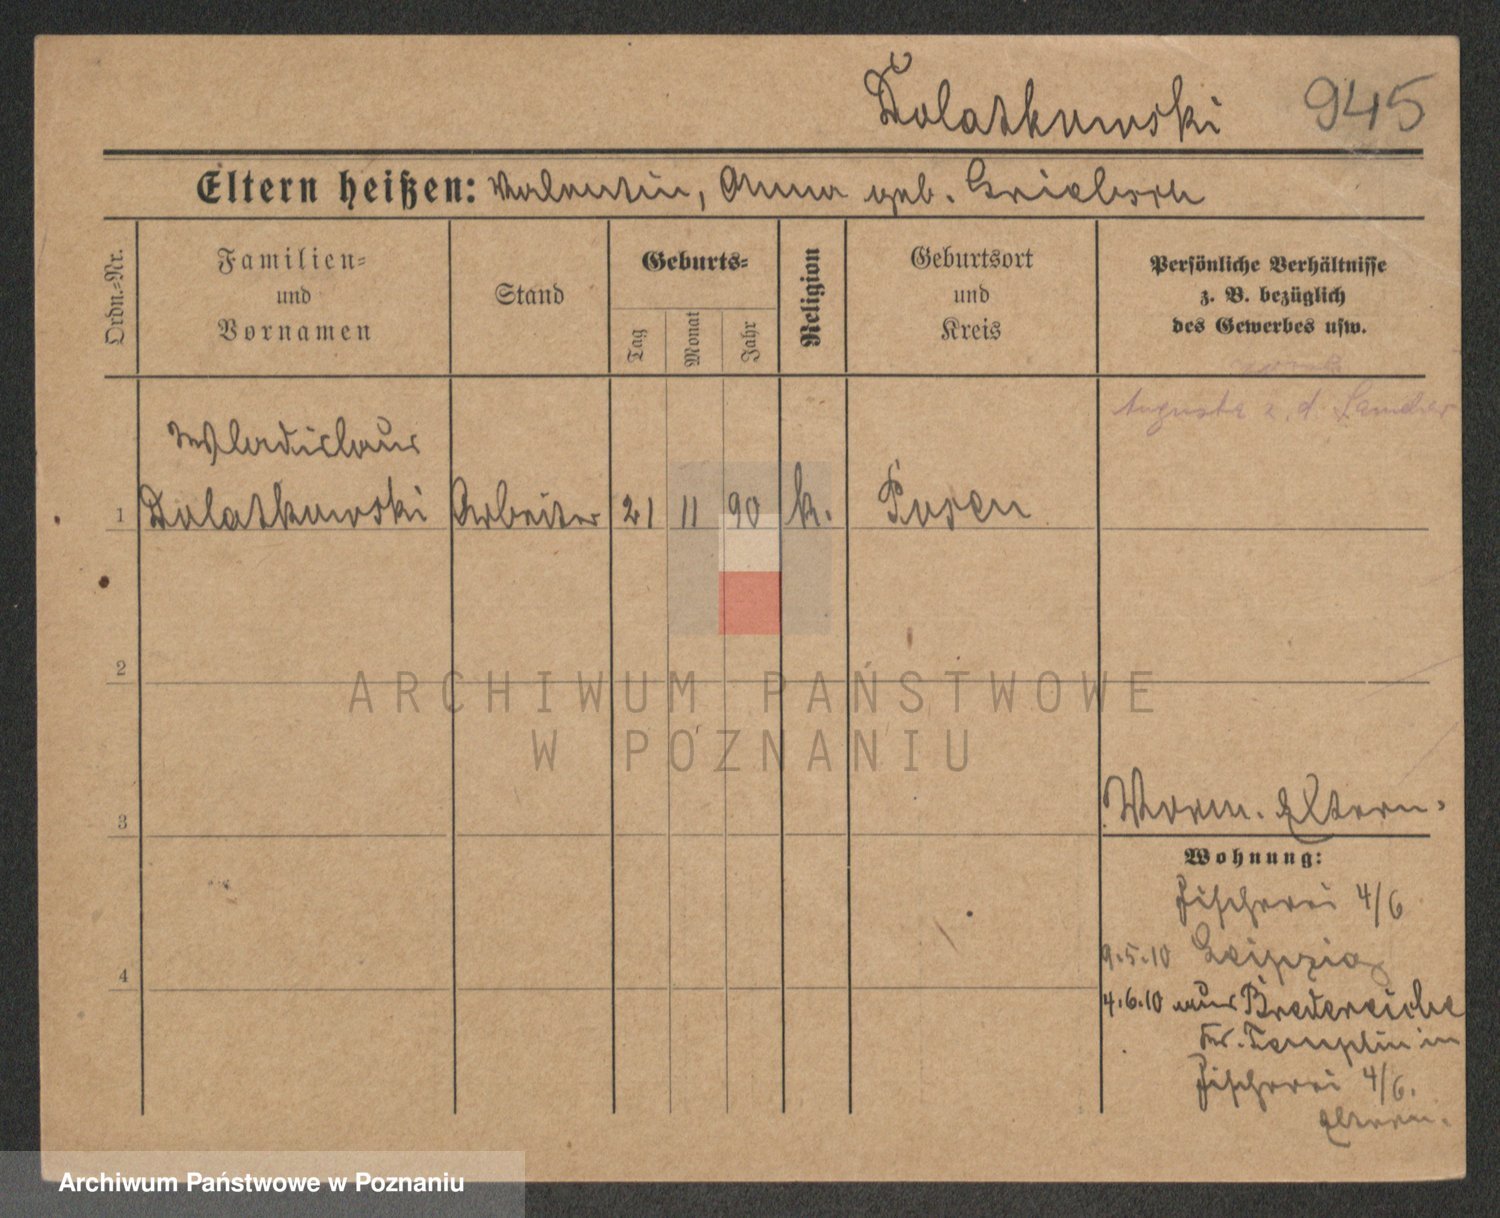 Dolatkowski 945
Eltern heißen: Valentin, Anna geb.
Ordn.-Nr.
Familien-
und
Vornamen
Stand
Geburts-
Tag
Monat
Jahr
Religion
Geburtsort
und
Kreis
Persönliche Verhältnisse
z. B. bezüglich
des Gewerbes usw.
Auguste z. d.
Wladislaus
1 Dolatkowski Arbeiter 21 11 90 k. Posen
2
3
4
Worm. Eltern.
Wohnung:
Fischerei 4/6
9.5.10 Leipzig
4.6.10 aus Bredereiche
Kr. Templin in
Fischerei 4/6.
Eltern.
ARCHIWUM PAŃSTWOWE
W POZNANIU
Archiwum Państwowe w Poznaniu